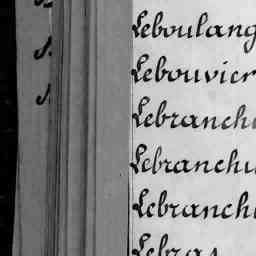 Leboulang
Lebouvier
Lebranch
Lebranchu
Lebranch
Lebras